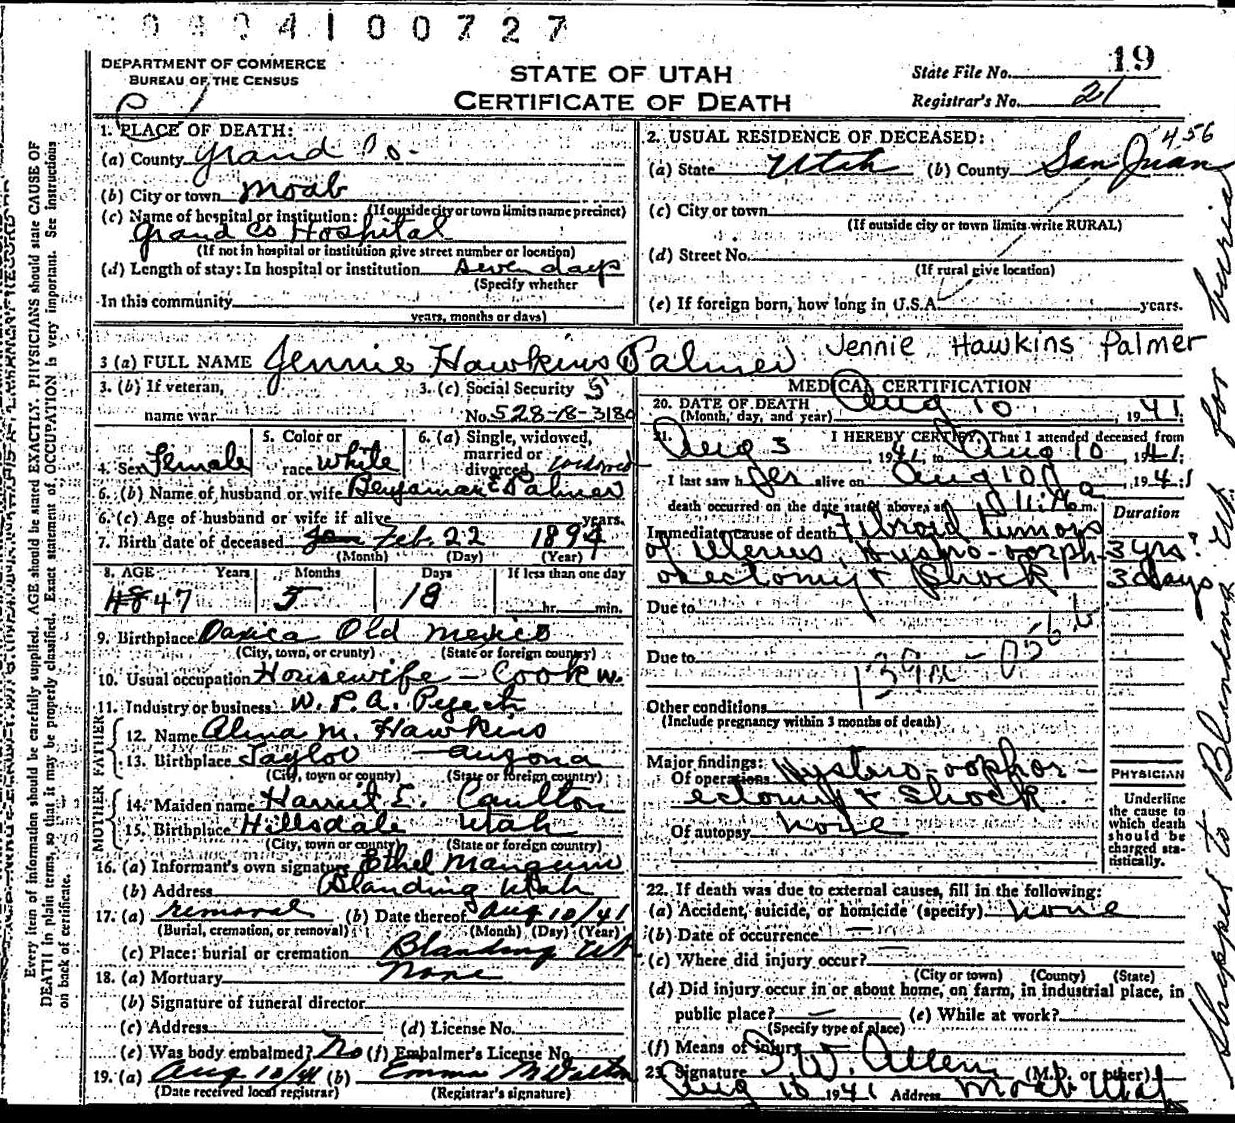 0904100727
DEPARTMENT OF COMMERCE
BUREAU OF THE CENSUS
STATE OF UTAH
CERTIFICATE OF DEATH
19
State File No.
Registrar's No. 21
1. PLACE OF DEATH:
(a) County Grand Co.
(b) City or town Moab
(If outside city or town limits name precinct)
(c) Name of hospital or institution:
Grand Co Hospital
(If not in hospital or institution give street number or location)
(d) Length of stay: In hospital or institution seven days
(Specify whether
In this community
years, months or days)
2. USUAL RESIDENCE OF DECEASED: 456
(a) State Utah (b) County San Juan
(c) City or town
(If outside city or town limits write RURAL)
(d) Street No.
(If rural give location)
(e) If foreign born, how long in U.S.A. years.
3 (a) FULL NAME Jennie Hawkins Palmer Jennie Hawkins Palmer
3. (b) If veteran,
name war
3. (c) Social Security
No. 528-18-3180
4. Sex Female
5. Color or
race white
6. (a) Single, widowed,
married or
divorced widowed
6. (b) Name of husband or wife Palmer
6. (c) Age of husband or wife if alive years.
7. Birth date of deceased Jan Feb. 22 1894
(Month) (Day) (Year)
8. AGE Years Months Days If less than one day
48 47 5 18 hr. min.
9. Birthplace Oaxica Old Mexico
(City, town, or crunty) (State or foreign country)
10. Usual occupation Housewife - Cook w.
11. Industry or business W. P. A.
FATHER
12. Name M. Hawkins
13. Birthplace Taylor
(City, town or county) (State or foreign country)
MOTHER
14. Maiden name E.
15. Birthplace Hillsdale Utah
(City, town or county) (State or foreign country)
16. (a) Informant's own signature Ethel Mangum
(b) Address Blanding Utah
17. (a) removal (b) Date thereof Aug 10/41
(Burial, cremation, or removal) (Month) (Day) (Year)
(c) Place: burial or cremation Blanding Ut
18. (a) Mortuary None
(b) Signature of funeral director
(c) Address (d) License No.
(e) Was body embalmed? No (f) Embalmer's License No.
19. (a) Aug 10/41 (b) Emma
(Date received local registrar) (Registrar's signature)
MEDICAL CERTIFICATION
20. DATE OF DEATH Aug 10, 1941
(Month, day, and year)
21. I HEREBY CERTIFY, That I attended deceased from
Aug 3, 1941, to Aug 10, 1941;
I last saw her alive on Aug 10, 1941
death occurred on the date stated above, at m.
Duration
Immediate cause of death Fibroid tumors
of Uterus, Hystro-oorph- 3 yrs?
orectomy & Shock 3 days
Due to
Due to
Other conditions
(Include pregnancy within 3 months of death)
Major findings:
Of operations Hystro-oophor-
ectomy & Shock
Of autopsy none
PHYSICIAN
Underline
the cause to
which death
should be
charged sta-
tistically.
22. If death was due to external causes, fill in the following:
(a) Accident, suicide, or homicide (specify) none
(b) Date of occurrence
(c) Where did injury occur?
(City or town) (County) (State)
(d) Did injury occur in or about home, on farm, in industrial place, in
public place? (e) While at work?
(Specify type of place)
(f) Means of injury
23. Signature W. Allen (M.D. or other)
Aug 10 1941 Address Moab Utah
Every item of information should be carefully supplied. AGE should be stated EXACTLY. PHYSICIANS should state CAUSE OF
DEATH in plain terms, so that it may be properly classified. Exact statement of OCCUPATION is very important. See instructions
on back of certificate.
to Blanding for burial